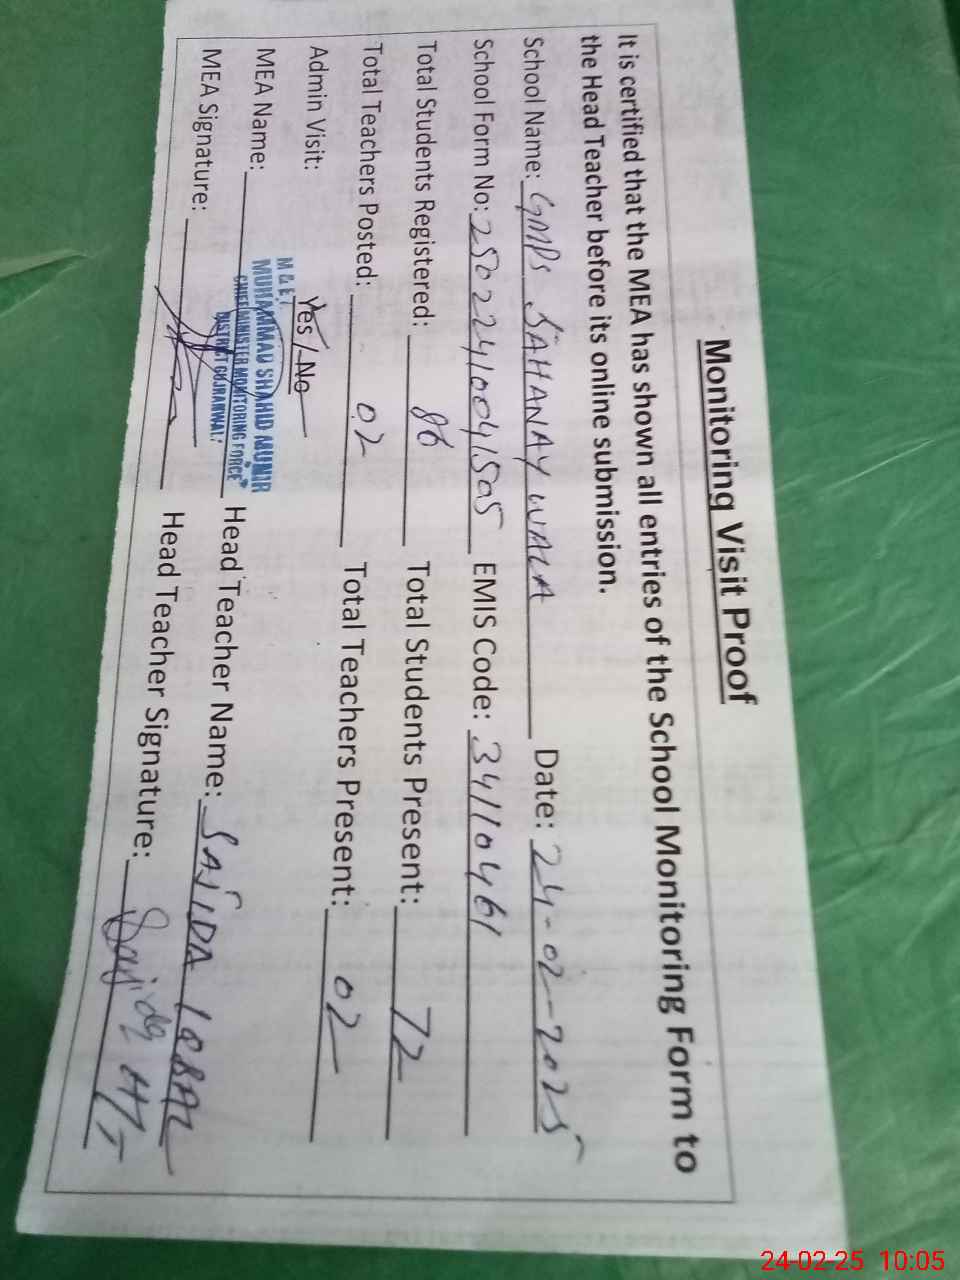 Monitoring Visit Proof
It is certified that the MEA has shown all entries of the School Monitoring Form to
the Head Teacher before its online submission.
School Name: GMPS SAHANAY WALA Date: 24-02-2025
School Form No: 25022410041505 EMIS Code: 34110461
Total Students Registered: 86 Total Students Present: 72
Total Teachers Posted: 02 Total Teachers Present: 02
Admin Visit: Yes / No
M & E A
MEA Name: MUHAMMAD SHAHID MUNIR Head Teacher Name: SAJIDA IQBAL
CHIEF MINISTER MONITORING FORCE
DISTRICT GUJRANWALA
MEA Signature: Head Teacher Signature: Sajida HT
24-02-25 10:05